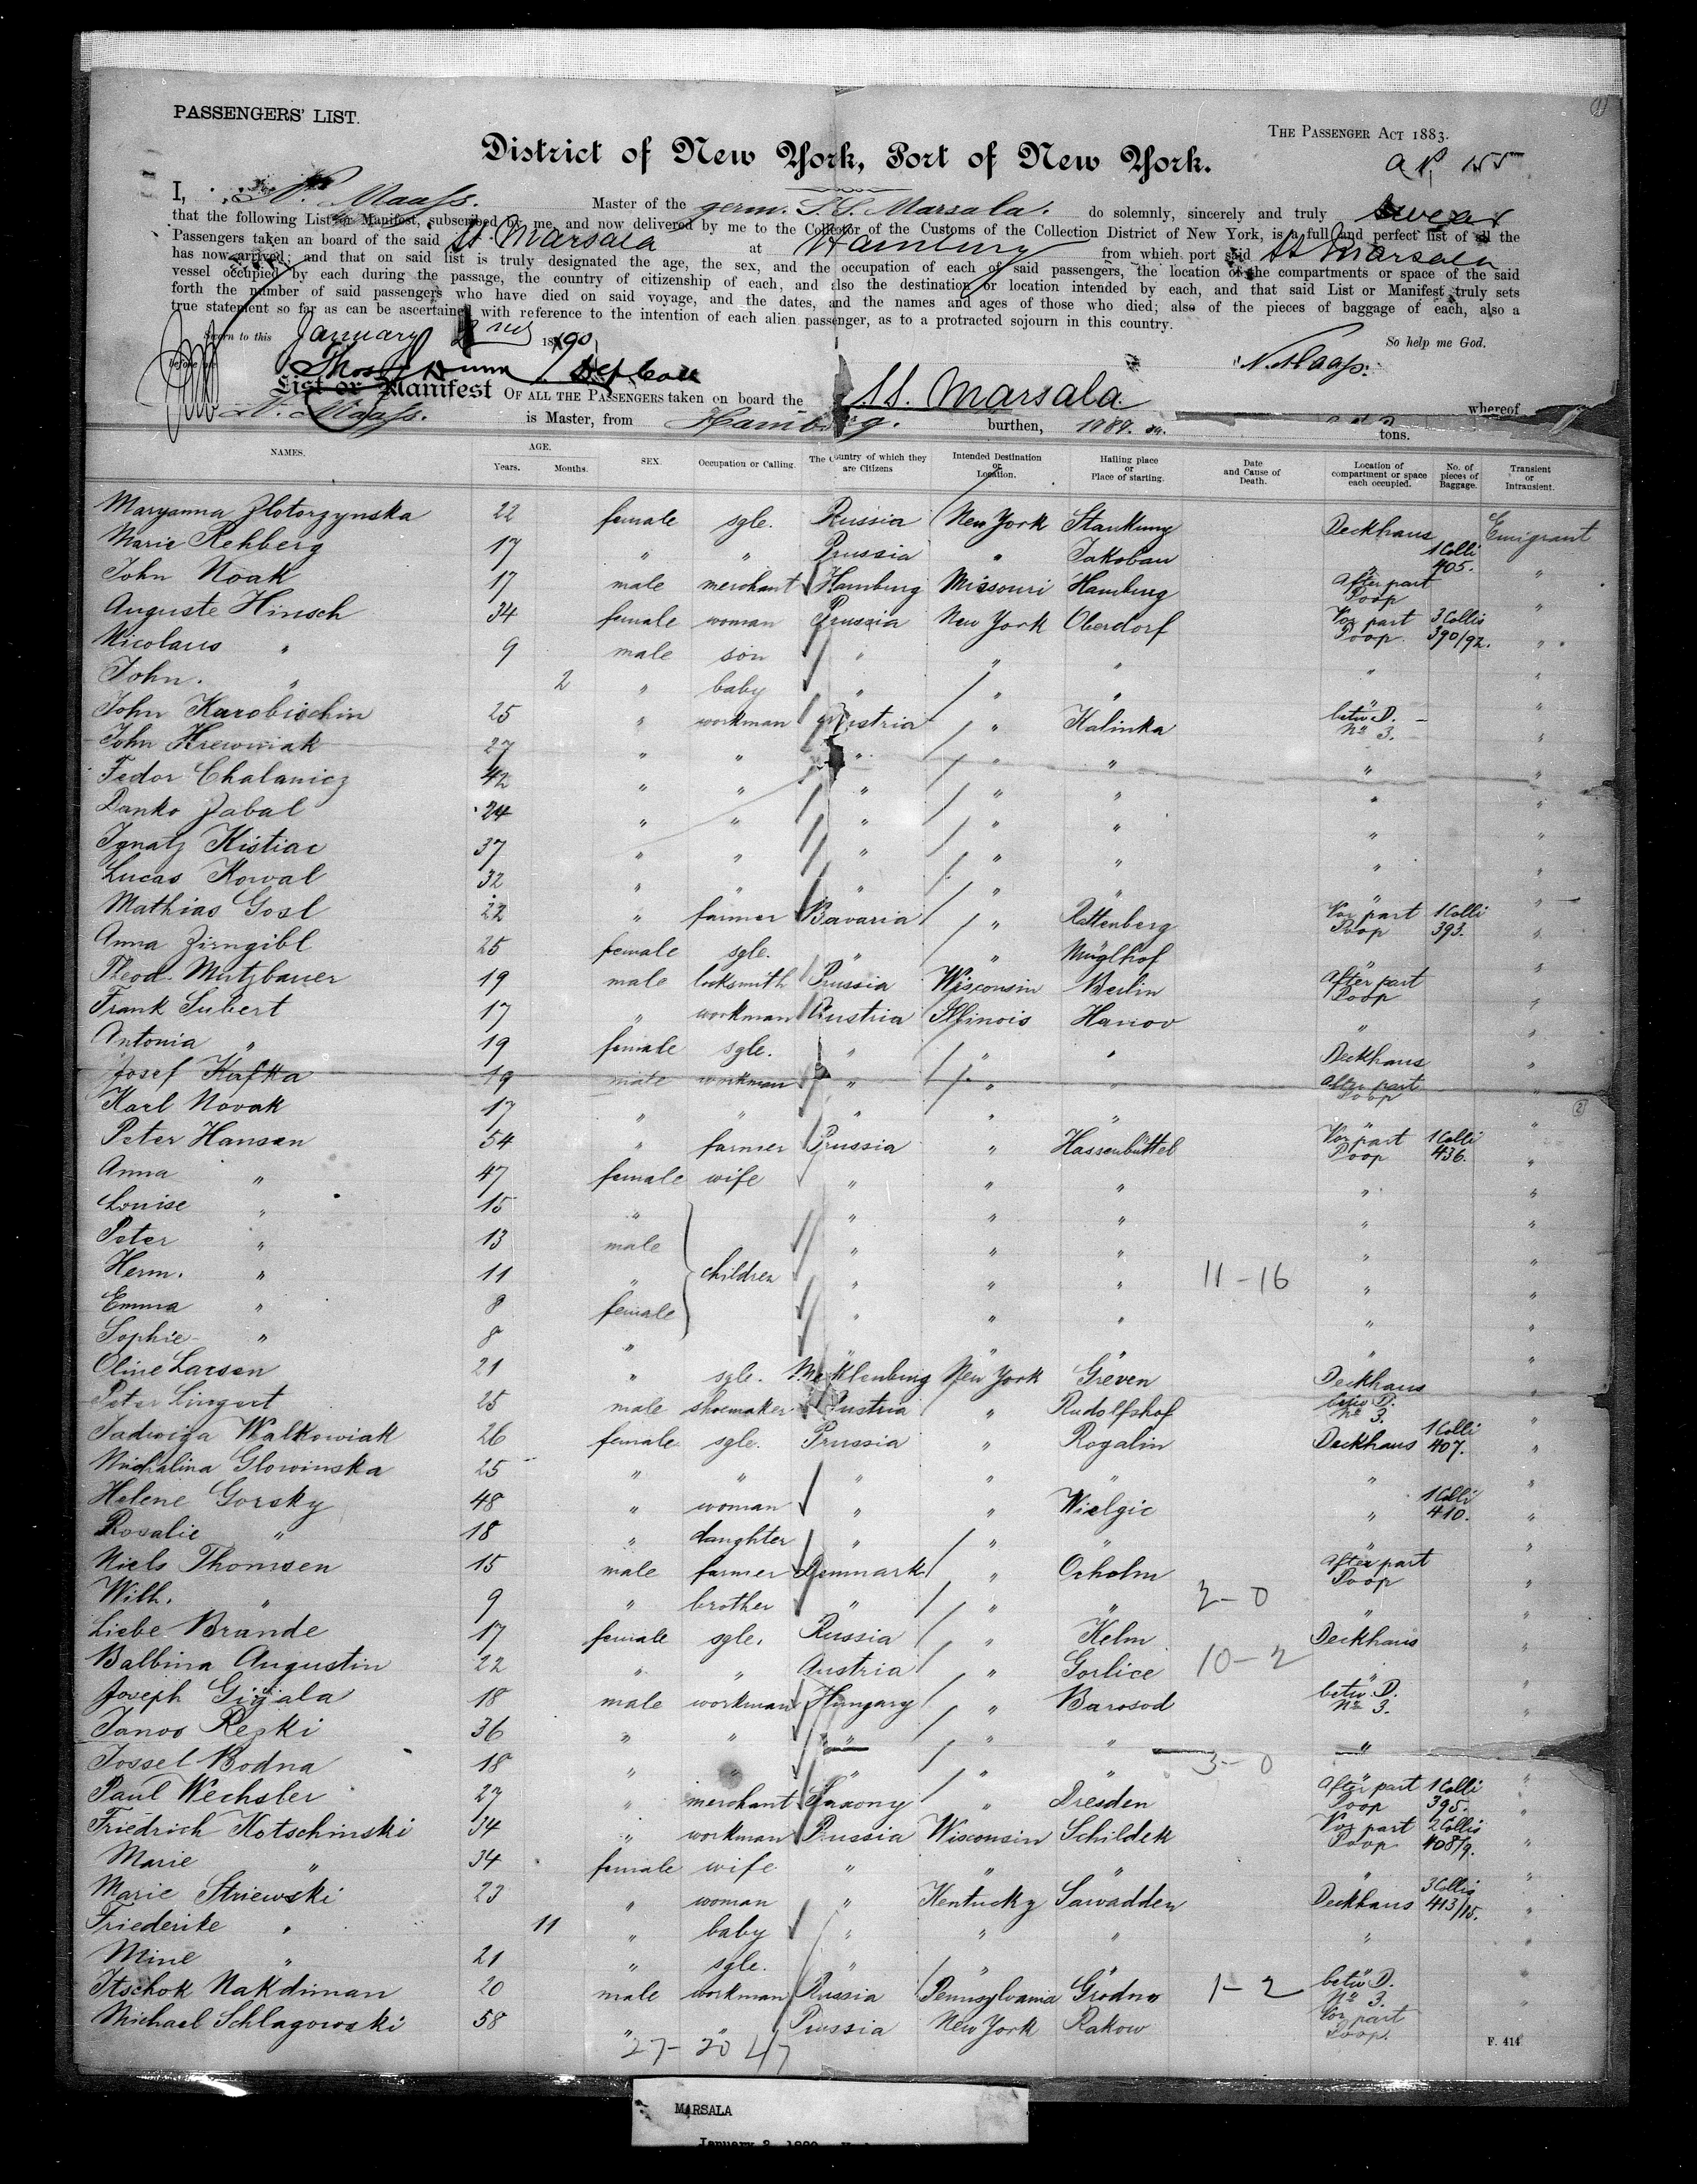 PASSENGERS' LIST.
THE PASSENGER ACT 1883.
District of New York, Port of New York.
I, N. Maass. Master of the germ. S.S. Marsala. do solemnly, sincerely and truly swear
that the following List or Manifest, subscribed by me, and now delivered by me to the Collector of the Customs of the Collection District of New York, is a full and perfect list of all the
Passengers taken an board of the said SS Marsala at Hamburg from which port said SS Marsala
has now arrived; and that on said list is truly designated the age, the sex, and the occupation of each of said passengers, the location of the compartments or space of the said
vessel occupied by each during the passage, the country of citizenship of each, and also the destination or location intended by each, and that said List or Manifest truly sets
forth the number of said passengers who have died on said voyage, and the dates, and the names and ages of those who died; also of the pieces of baggage of each, also a
true statement so far as can be ascertained with reference to the intention of each alien passenger, as to a protracted sojourn in this country.
Sworn to this January 2nd 1890 So help me God.
before me Thos Dunn Dep Coll N. Maass.
List or Manifest OF ALL THE PASSENGERS taken on board the SS. Marsala whereof
N. Maass. is Master, from Hamburg. burthen, 1989. tons.
NAMES. AGE. Years. Months. SEX. Occupation or Calling. The Country of which they are Citizens Intended Destination or Location. Hailing place or Place of starting. Date and Cause of Death. Location of compartment or space each occupied. No. of pieces of Baggage. Transient or Intransient.
Maryanna Zlotorzynska 22 female sgle. Russia New York Deckhaus Emigrant
Marie Rehberg 17 " " Prussia " Jakobau " 1 Colli 405. "
John Noak 17 male merchant Hamburg Missouri Hamburg After part Poop "
Auguste Hinsch 34 female woman Prussia New York Oberdorf Vor part Poop. 3 Collis 390/92. "
Nicolaus " 9 male son " " " " "
John. " 2 " baby " " " " "
John Karobiochin 25 " workman Austria " Kalinka betw D. No 3. "
John Hrewniak 27 " " " " " " "
Fedor Chalanicz 42 " " " " " " "
Danko Zabal 24 " " " " " " "
Ignatz Kistiac 37 " " " " " " "
Lucas Kowal 32 " " " " " " "
Mathias Gosl 22 " farmer Bavaria " Rettenberg Vor part Poop 1 Colli 393. "
Anna Zirngibl 25 female sgle. " " Müglhof " "
Theod. Mutzbauer 19 male locksmith Prussia Wisconsin Berlin After part Poop "
Frank Subert 17 " workman Austria Illinois Hanov " "
Antonia " 19 female sgle. " " " Deckhaus "
Josef Kafka 19 male workman " " " After part Poop "
Karl Novak 17 " " " " " " "
Peter Hansen 54 " farmer Prussia " Hassenbüttel Vor part Poop 1 Colli 436. "
Anna " 47 female wife " " " " "
Louise " 15 " " " " " "
Peter " 13 male " " " " "
Herm. " 11 " children " " " 11-16 " "
Emma " 8 female " " " " "
Sophie " 8 " " " " " "
Oline Larsen 21 " sgle. Mecklenburg New York Greven Deckhaus "
Peter Lingert 25 male shoemaker Austria " Rudolfshof betw D. No 3. "
Jadwiga Walkowiak 26 female sgle. Prussia " Rogalin Deckhaus 1 Colli 407. "
Michalina Glowinska 25 " " " " " " "
Helene Gorsky 48 " woman " " Wielgie " 1 Colli 410. "
Rosalie " 18 " daughter " " " " "
Niels Thomsen 15 male farmer Denmark " Oxholm After part Poop "
Wilh. " 9 " brother " " " 2-0 " "
Liebe Brande 17 female sgle. Russia " Kelm Deckhaus "
Balbina Augustin 22 " " Austria " Gorlice 10-2 " "
Joseph 18 male workman Hungary " Barosod betw D. No 3. "
Janos Rezki 36 " " " " " " "
Jossel Bodna 18 " " " " " 3-0 " "
Paul Wechsler 27 " merchant Saxony " Dresden After part Poop 1 Colli 395. "
Friedrich Kotschinski 34 " workman Prussia Wisconsin Schildek Vor part Poop 2 Collis 408/9. "
Marie " 34 female wife " " " " "
Marie Striewski 23 " woman " Kentucky Sawadden Deckhaus 3 Collis 413/15. "
Friederike " 11 " baby " " " " "
Mine " 21 " sgle. " " " " "
Itschok Nakdiman 20 male workman Russia Pennsylvania Grodno 1-2 betw D. No 3. "
Michael Schlagowski 58 " " Prussia New York Rakow Vor part Poop. "
27-20 47
F. 414
MARSALA